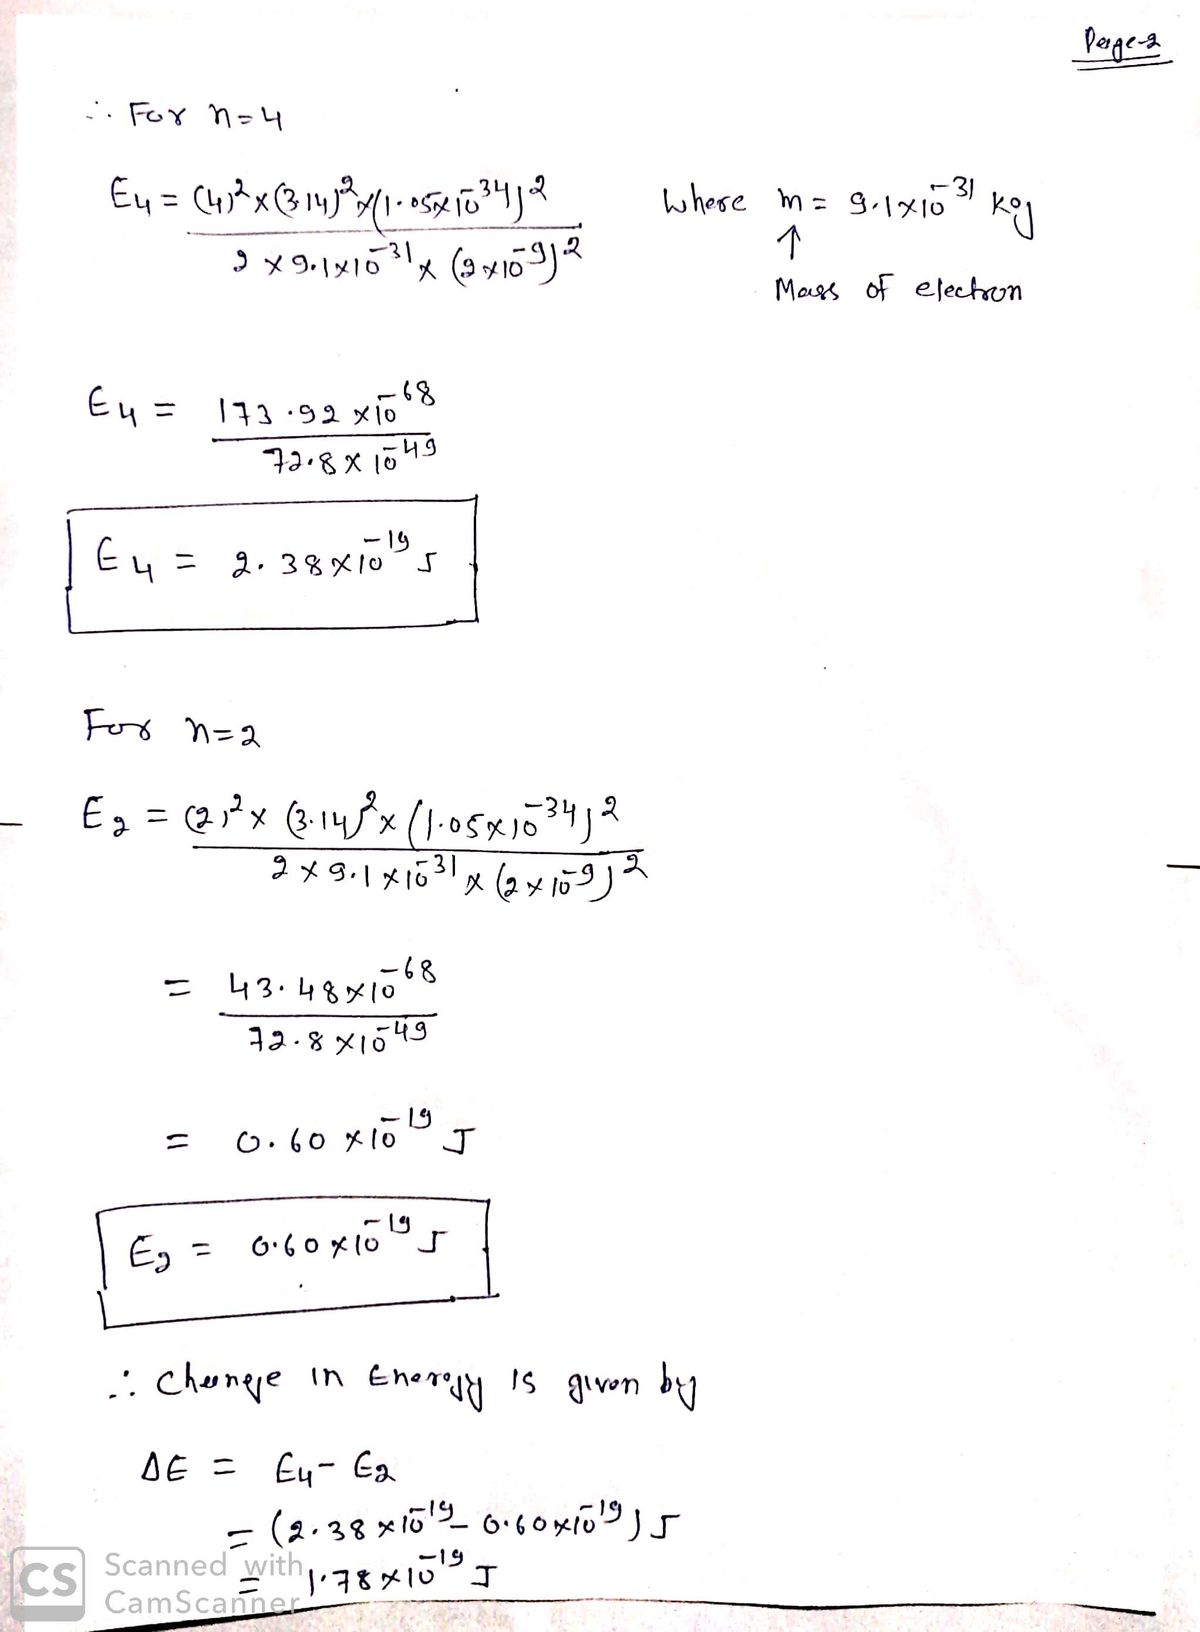 Page-2
∴ For n=4
E4 = (4)² × (3.14)² × (1.05×10⁻³⁴)² / 2 × 9.1×10⁻³¹ × (2×10⁻⁹)²
where m = 9.1×10⁻³¹ kg
↑
Mass of electron
E4 = 173.92 ×10⁻⁶⁸ / 72.8 × 10⁻⁴⁹
E4 = 2.38×10⁻¹⁹ J
For n=2
E2 = (2)² × (3.14)² × (1.05×10⁻³⁴)² / 2 × 9.1 ×10⁻³¹ × (2×10⁻⁹)²
= 43.48×10⁻⁶⁸ / 72.8 ×10⁻⁴⁹
= 0.60 ×10⁻¹⁹ J
E2 = 0.60×10⁻¹⁹ J
∴ Change in Energy is given by
ΔE = E4 - E2
= (2.38 ×10⁻¹⁹ - 0.60×10⁻¹⁹) J
= 1.78×10⁻¹⁹ J
CS Scanned with
CamScanner